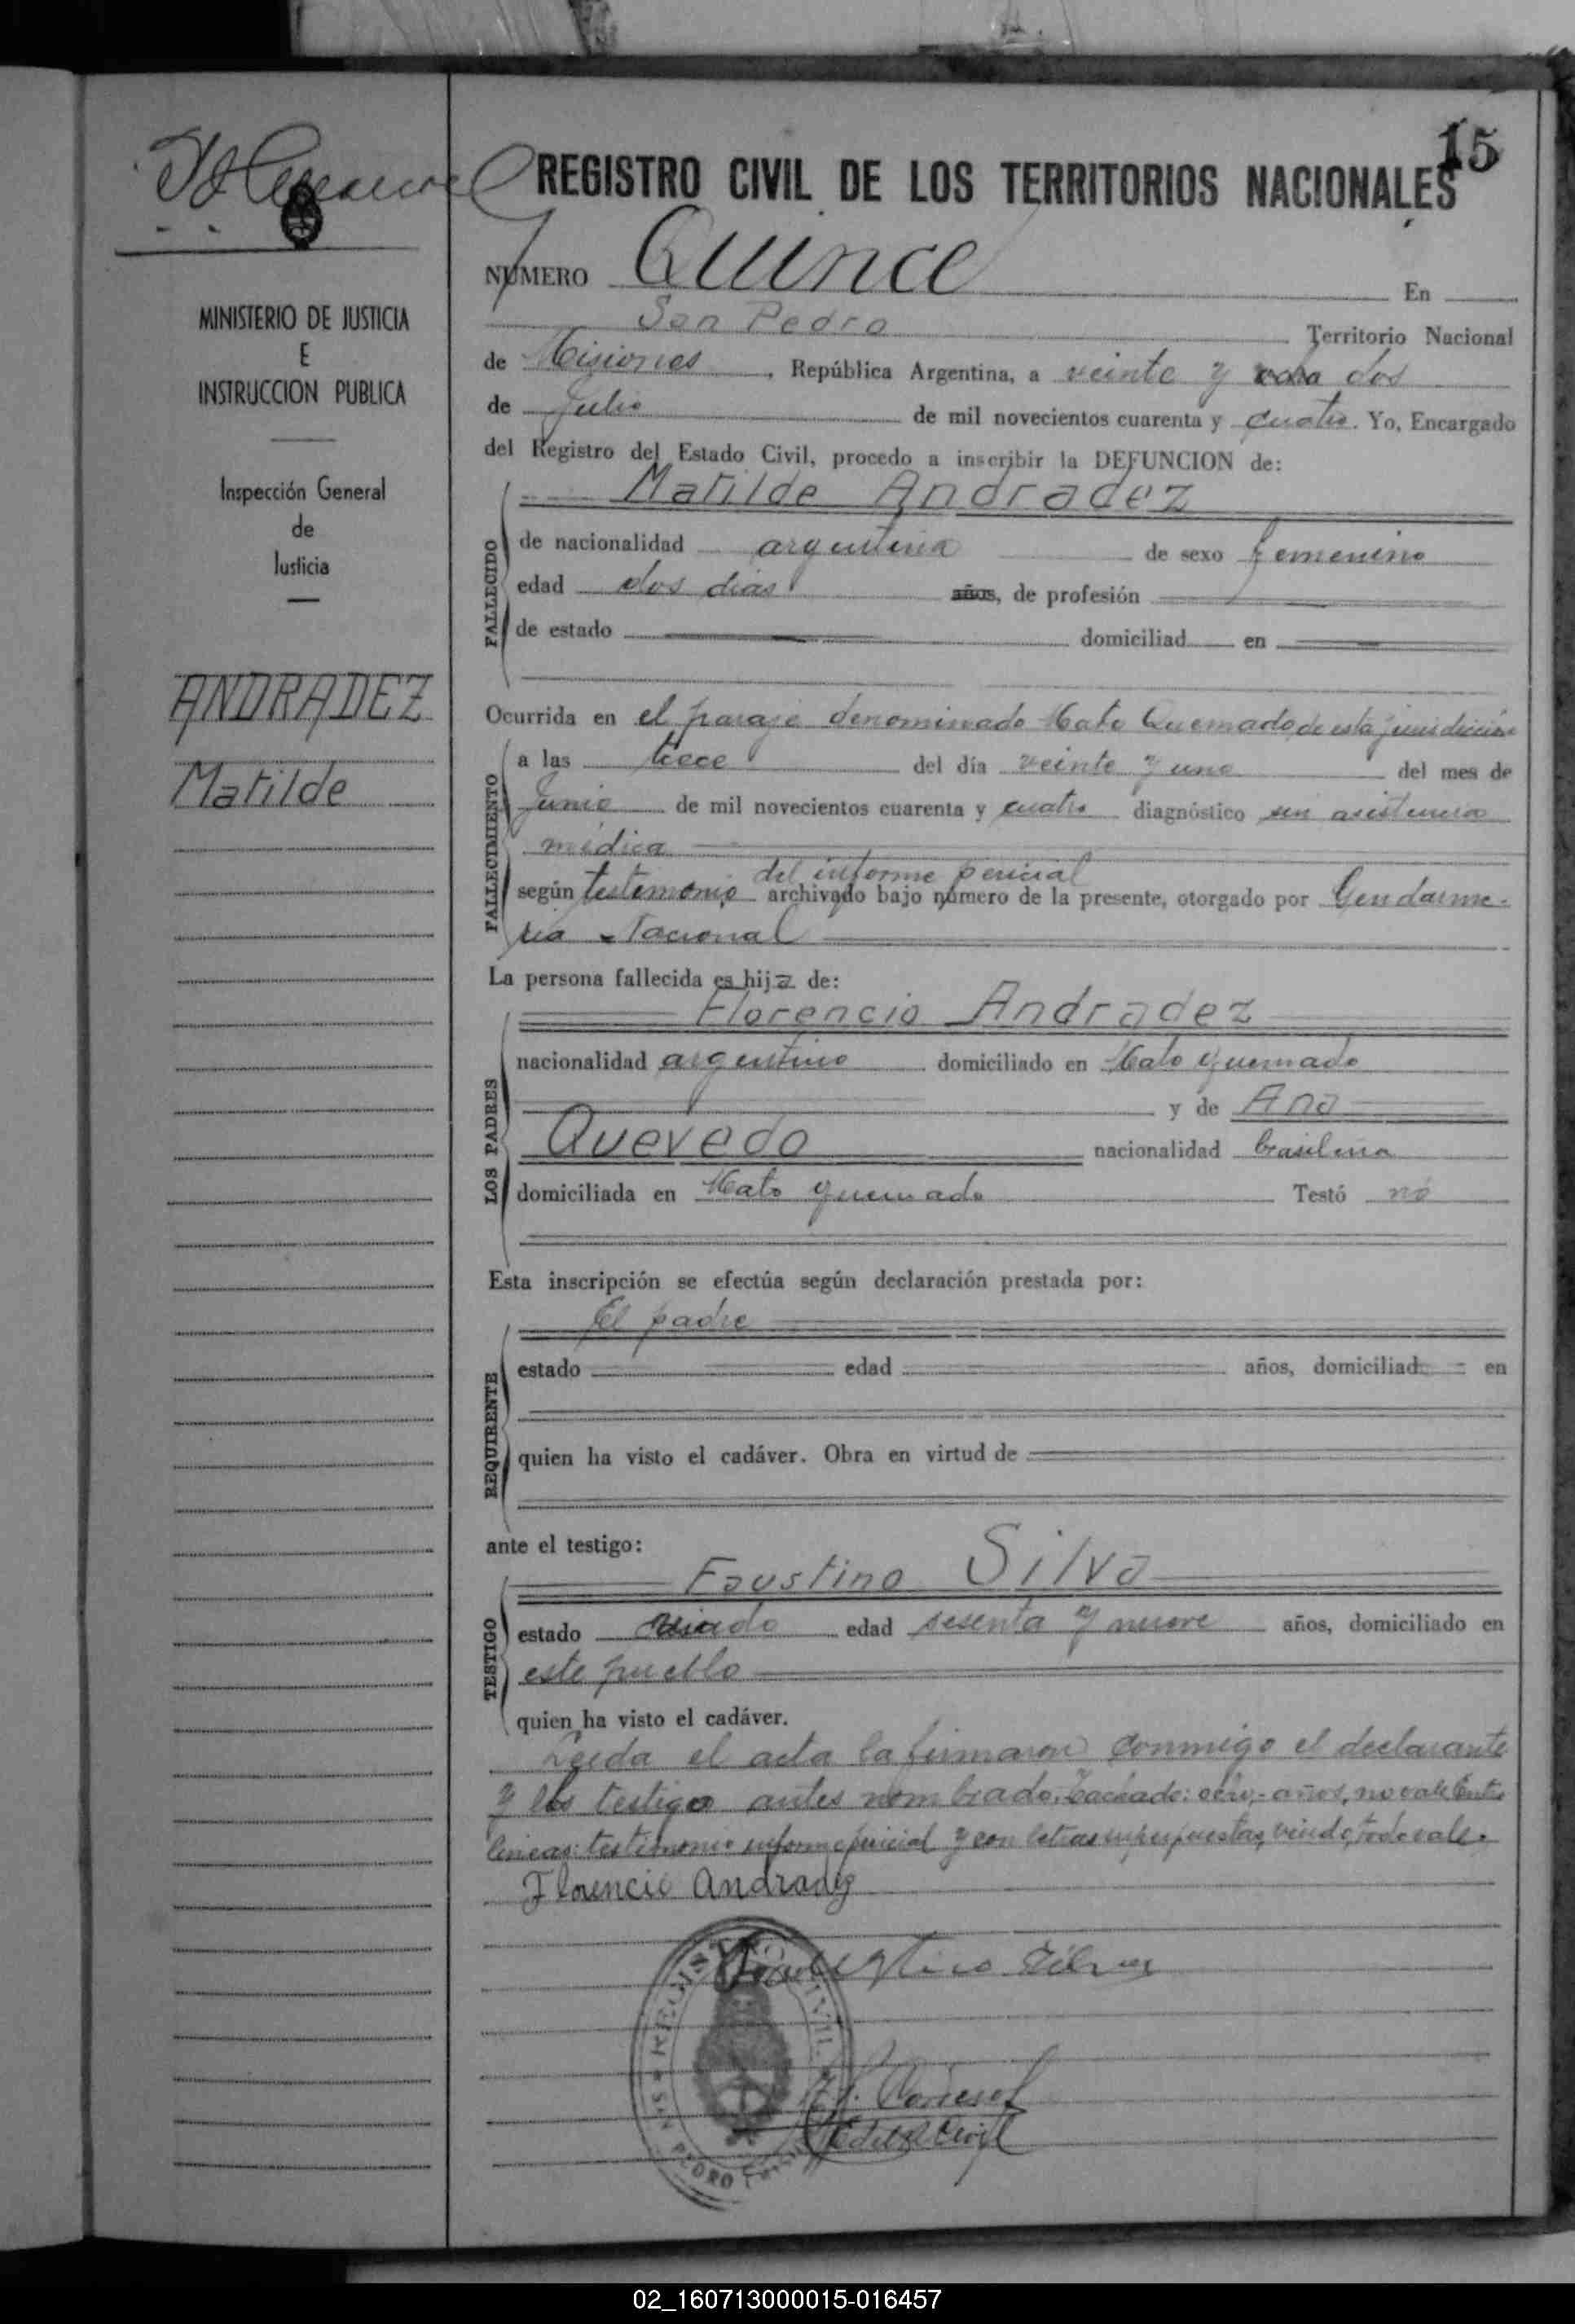 15
REGISTRO CIVIL DE LOS TERRITORIOS NACIONALES
MINISTERIO DE JUSTICIA
E
INSTRUCCION PUBLICA
Inspección General
de
Justicia
ANDRADEZ
Matilde
NUMERO Quince En
San Pedro Territorio Nacional
de Misiones, República Argentina, a veinte y ocho dos
de Julio de mil novecientos cuarenta y cuatro. Yo, Encargado
del Registro del Estado Civil, procedo a inscribir la DEFUNCION de:
FALLECIDO
Matilde Andradez
de nacionalidad argentina de sexo femenino
edad dos dias años, de profesión
de estado domiciliad en
Ocurrida en el paraje denominado Mato Quemado, de esta jurisdicción
FALLECIMIENTO
a las trece del día veinte y uno del mes de
Junio de mil novecientos cuarenta y cuatro diagnóstico sin asistencia
médica
del informe pericial
según testimonio archivado bajo número de la presente, otorgado por Gendarme-
ria Nacional
La persona fallecida es hija de:
LOS PADRES
Florencio Andradez
nacionalidad argentino domiciliado en Mato quemado
y de Ana
Quevedo nacionalidad brasilena
domiciliada en Mato quemado Testó no
Esta inscripción se efectúa según declaración prestada por:
REQUIRENTE
El padre
estado edad años, domiciliad en
quien ha visto el cadáver. Obra en virtud de
ante el testigo:
TESTIGO
Faustino Silva
estado viudo edad sesenta y nueve años, domiciliado en
este pueblo
quien ha visto el cadáver.
Leida el acta la firmaron conmigo el declarante
y los testigo antes nombrado. Tachado: ocho,- años, no vale. Entre
lineas: testimonio informe pericial y con letras superpuestas, viudo, todo vale.
Florencio Andradez
Faustino Silva
REGISTRO CIVIL
SAN PEDRO
02_160713000015-016457